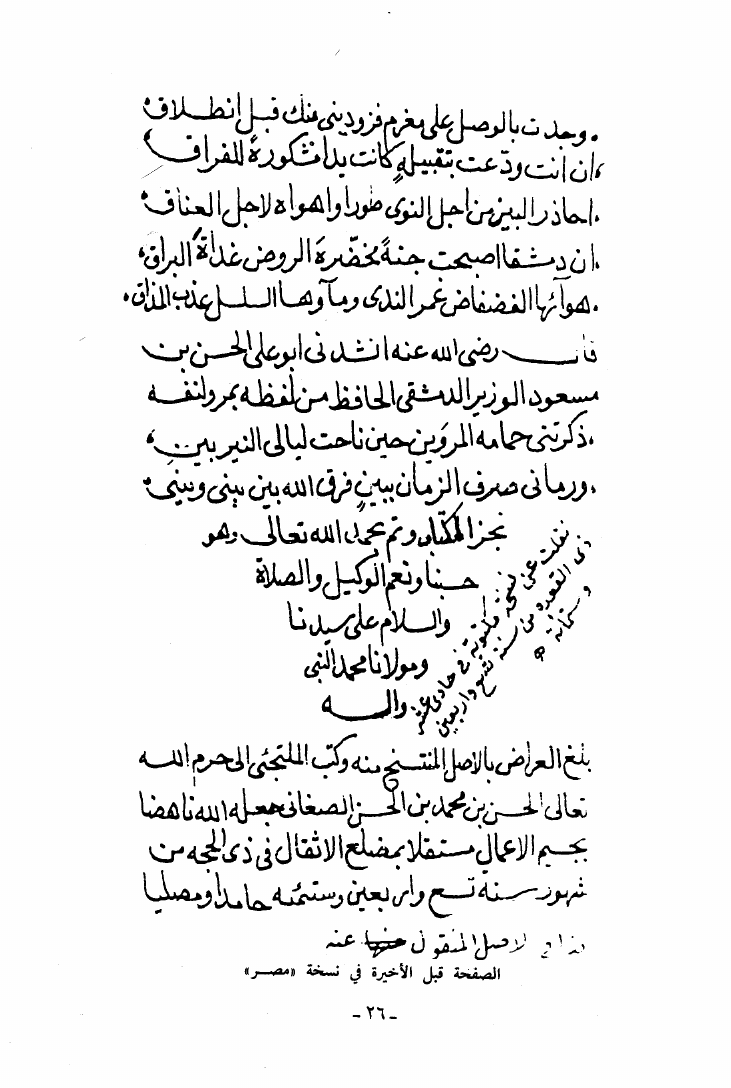 وجدت بالوصل على مغرم فزوديني منك قبل انطلاق
ان انت ودعت بتقبيله كانت يدا مشكورة للفراق
احاذر البين من اجل النوى طورا واهواه لاجل العناق
ان دمشقا اصبحت جنة مخضرة الروض غداة البراق
هوآئها الفضفاض غمر الندى ومآوها السلسل عذب المذاق
قال رضى الله عنه انشدنى ابو على الحسن بن
مسعود الوزير الدمشقى الحافظ من لفظه بمرو لنفسه
ذكرتنى حمامة المروين حين ناحت ليالى النيربين
ورمانى صرف الزمان ببين فرق الله بين بينى وبينى
نجز الكتاب وتم بحمد الله تعالى وهو
حسبنا ونعم الوكيل والصلاة
والسلام على سيدنا
ومولانا محمد النبى
واله
نقلت من نسخة مكتوبة في حادى عشر
ذى القعده من سنة تسع واربعين
وستمائة
بلغ العراض بالاصل المنتسخ منه وكتب الملتجئ الى حرم الله
تعالى الحسن بن محمد بن الحسن الصغانى جعله الله ناهضا
بجسيم الاعمال مستقلا بمضلع الاثقال في ذى الحجه من
شهور سنة تسع واربعين وستمئه حامدا ومصليا
الاصل المنقول عنه
الصفحة قبل الأخيرة في نسخة «مصر»
- ٢٦ -